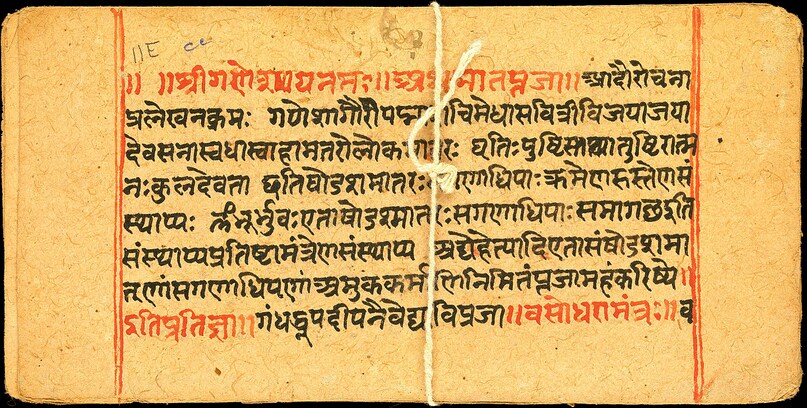 ॥E
॥ ॥श्रीगणेशायनमः॥अथमातृपूजा॥आदौरोचना
प्रलेखनक्रमः गणेशगौरीपद्माशचिमेधासवित्रीविजयाजया
देवसेनास्वधास्वाहामातरोलोकमातरः धृतिःपुष्टिस्तथातुष्टिरात्म
नःकुलदेवता इतिषोडशमातरः गणाधिपाः क्रमेणहस्तेणसं
स्थाप्यः ॐभूर्भुवःएताषोडशमातरःसगणाधिपाःसमागछइति
संस्थाप्यप्रतिष्ठामंत्रेणसंस्थाप्य अद्येहेत्यादिएतासंषोडशमा
तृणांसगणाधिपाणां अमुककर्मणिनिमितंपूजामहंकरिष्ये॥
इतिप्रतिज्ञा॥गंधद्रुपदीपनैवेद्यादिपूजा॥वसोधरामंत्रः॥व